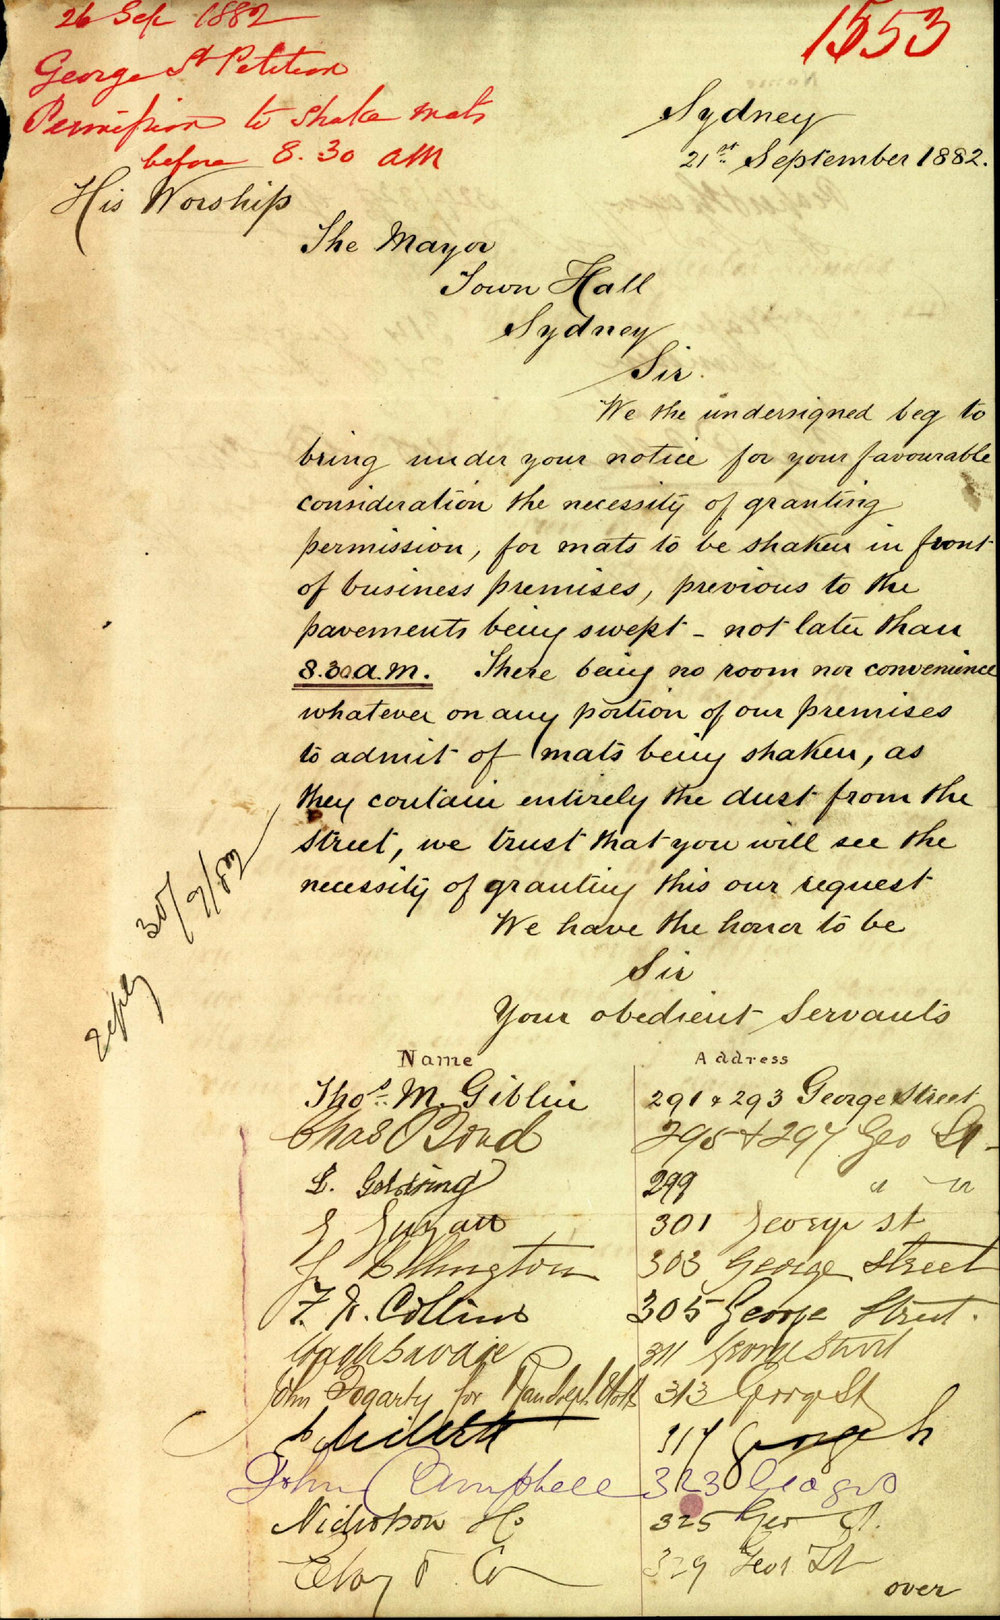 26 Sep 1882
1553
George St Petition
Permission to shake mats
before 8.30 AM
Sydney
21st September 1882.
His Worship
The Mayor
Town Hall
Sydney
Sir.
We the undersigned beg to
bring under your notice for your favourable
consideration the necessity of granting
permission, for mats to be shaken in front
of business premises, previous to the
pavements being swept - not later than
8.30 a.m. There being no room nor convenience
whatever on any portion of our premises
to admit of mats being shaken, as
they contain entirely the dust from the
street, we trust that you will see the
necessity of granting this our request
We have the honor to be
Sir
Your obedient Servants
reply 30/9/82
Name Address
Thos. M. Giblin 291 & 293 George Street
Chas Bond 295 & 297 Geo St
L. Goldring 299 " "
301 George st
J Ellington 303 George Street
F. N. Collins 305 George Street.
311 George Street
John Fogarty for 313 George St
317 George St
John Campbell 323 George
Nicholson & Co 325 Geo St.
Elvy & Co 329 Geo St
over